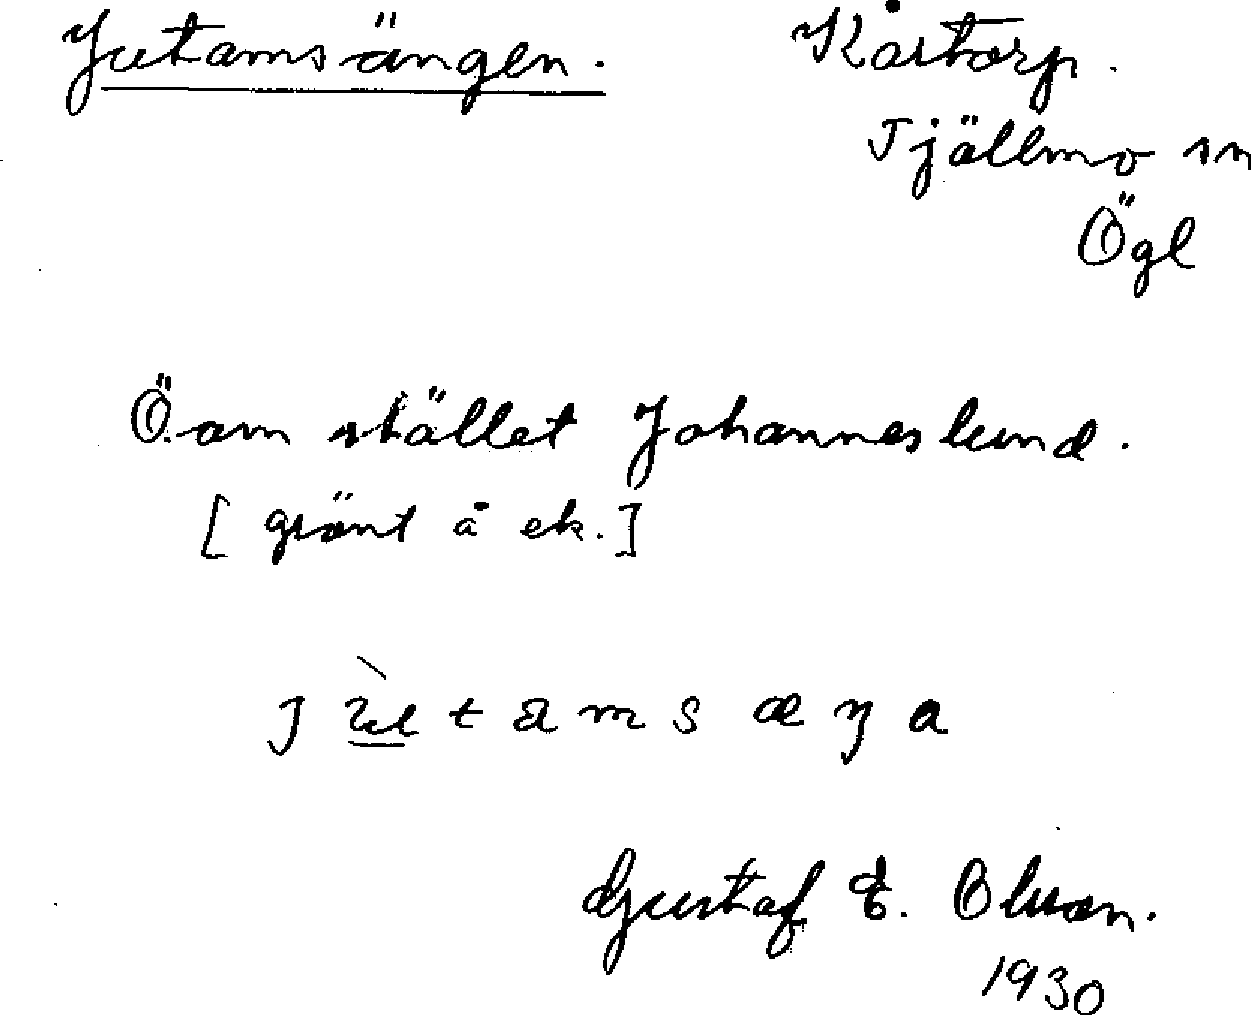 Jutamsängen. Kårtorp.
Tjällmo sn
Ögl
Ö. om stället Johanneslund.
[gränt å ek.]
Gustaf E. Olsson.
1930